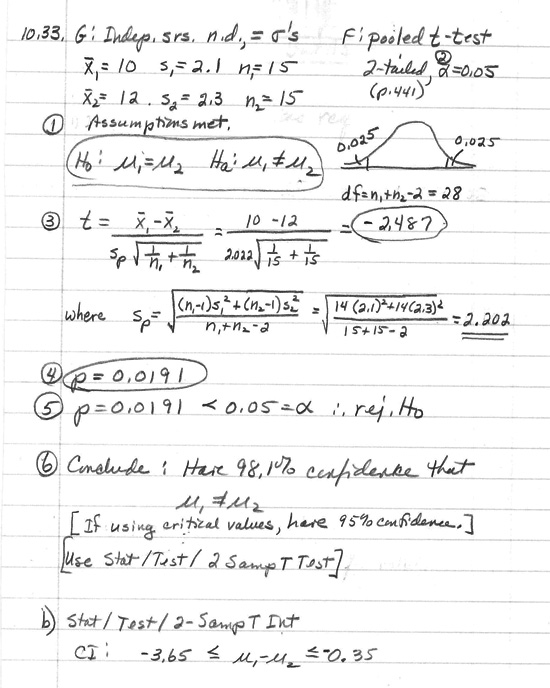 10.33. G: Indep. srs. n.d., = σ's F: pooled t-test
x̄₁ = 10 s₁ = 2.1 n₁ = 15 2-tailed, ② α = 0.05
x̄₂ = 12. s₂ = 2.3 n₂ = 15 (p.441)
① Assumptions met.
0.025 0.025
H₀: μ₁ = μ₂ Ha: μ₁ ≠ μ₂
df = n₁+n₂-2 = 28
③ t = (x̄₁ - x̄₂) / (sₚ √(1/n₁ + 1/n₂)) = (10 - 12) / (2.022 √(1/15 + 1/15)) = -2.487
where sₚ = √(((n₁-1)s₁² + (n₂-1)s₂²) / (n₁+n₂-2)) = √((14(2.1)² + 14(2.3)²) / (15+15-2)) = 2.202
④ p = 0.0191
⑤ p = 0.0191 < 0.05 = α ∴ rej. H₀
⑥ Conclude: Have 98.1% confidence that
μ₁ ≠ μ₂
[If using critical values, have 95% confidence.]
[Use Stat/Test/2 Samp T Test]
b) Stat/Test/2-Samp T Int
CI: -3.65 ≤ μ₁-μ₂ ≤ -0.35